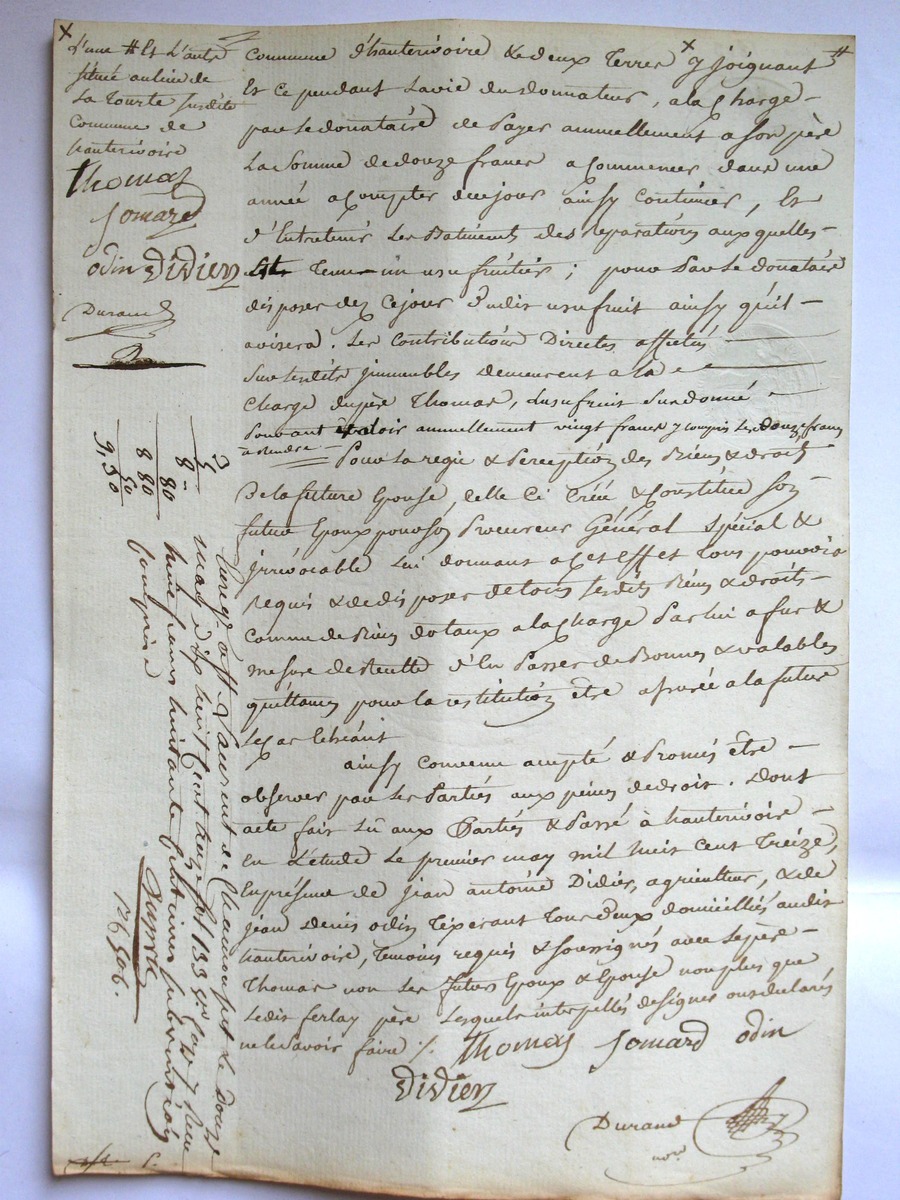 L'une # Et L'autre
située au lieu de
La tourte susdite
Commune de
hauterivoire
Thomas
Jomard
odin Didier
Durand
Commune d'hauterivoire & deux Terres y joignant #
Et ce pendant La vie du donnateur, a la Charge
par Le donataire de Payer annuellement a Son père
La Somme de douze francs a Commencer dans une
année a Compter de ce jour ainsy Continuer, Et
d'Entretenir Les Batiments des reparations aux quelles
Est Tenu un usufruitier; pour Par Le donataire
disposer dez ce jour dudit usufruit ainsy qu'il
avisera. Les Contributions Directes affectés
Sur lesdits jmmeubles demeurent a la
Charge du père Thomas, Lusufruit Susdonné
Pouvant valoir annuellement vingt francs y compris Les douze francs
a rendre
Pour La regie & Perception des Biens & droits
De la future Epouse, Celle Ci Créé & Constitue Son
futur Epoux pour son Procureur Général Spécial &
jrrévocable Lui donnant a Cet effet tous pouvoirs
Requis & de disposer de tous Lesdits Biens & droits
Comme de Biens dotaux a la Charge Par lui a fur &
mesure de Recette d'En Passer de Bonnes & valables
quittances pour La restitution être assurée a la future
Le Cas Echéant
ainsy Convenu accepté & Promis être
observer par Les Parties aux peines de droit. Dont
acte fait Lû aux Parties & Passé à hauterivoire
En L'étude Le premier may mil huit Cent Treize,
En présence de jean antoine Didier, agriculteur, & de
jean denis odin Tisserant Tous deux domiciliés audit
hauterivoire, Temoins requis & Soussignés avec Le père
Thomas non Les futurs Epoux & Epouse non plus que
Ledit ferlay père Lesquels interpellés de signer ont déclarés
ne le Savoir faire ./.
Thomas Jomard odin
Didier
Durand
nore
Enregt. a St Laurent de Chamousset Le douze
may dix huit Cent treize fol 133
huit francs huitante Centimes Subvention
Comprise
8 80
8 80
9,30